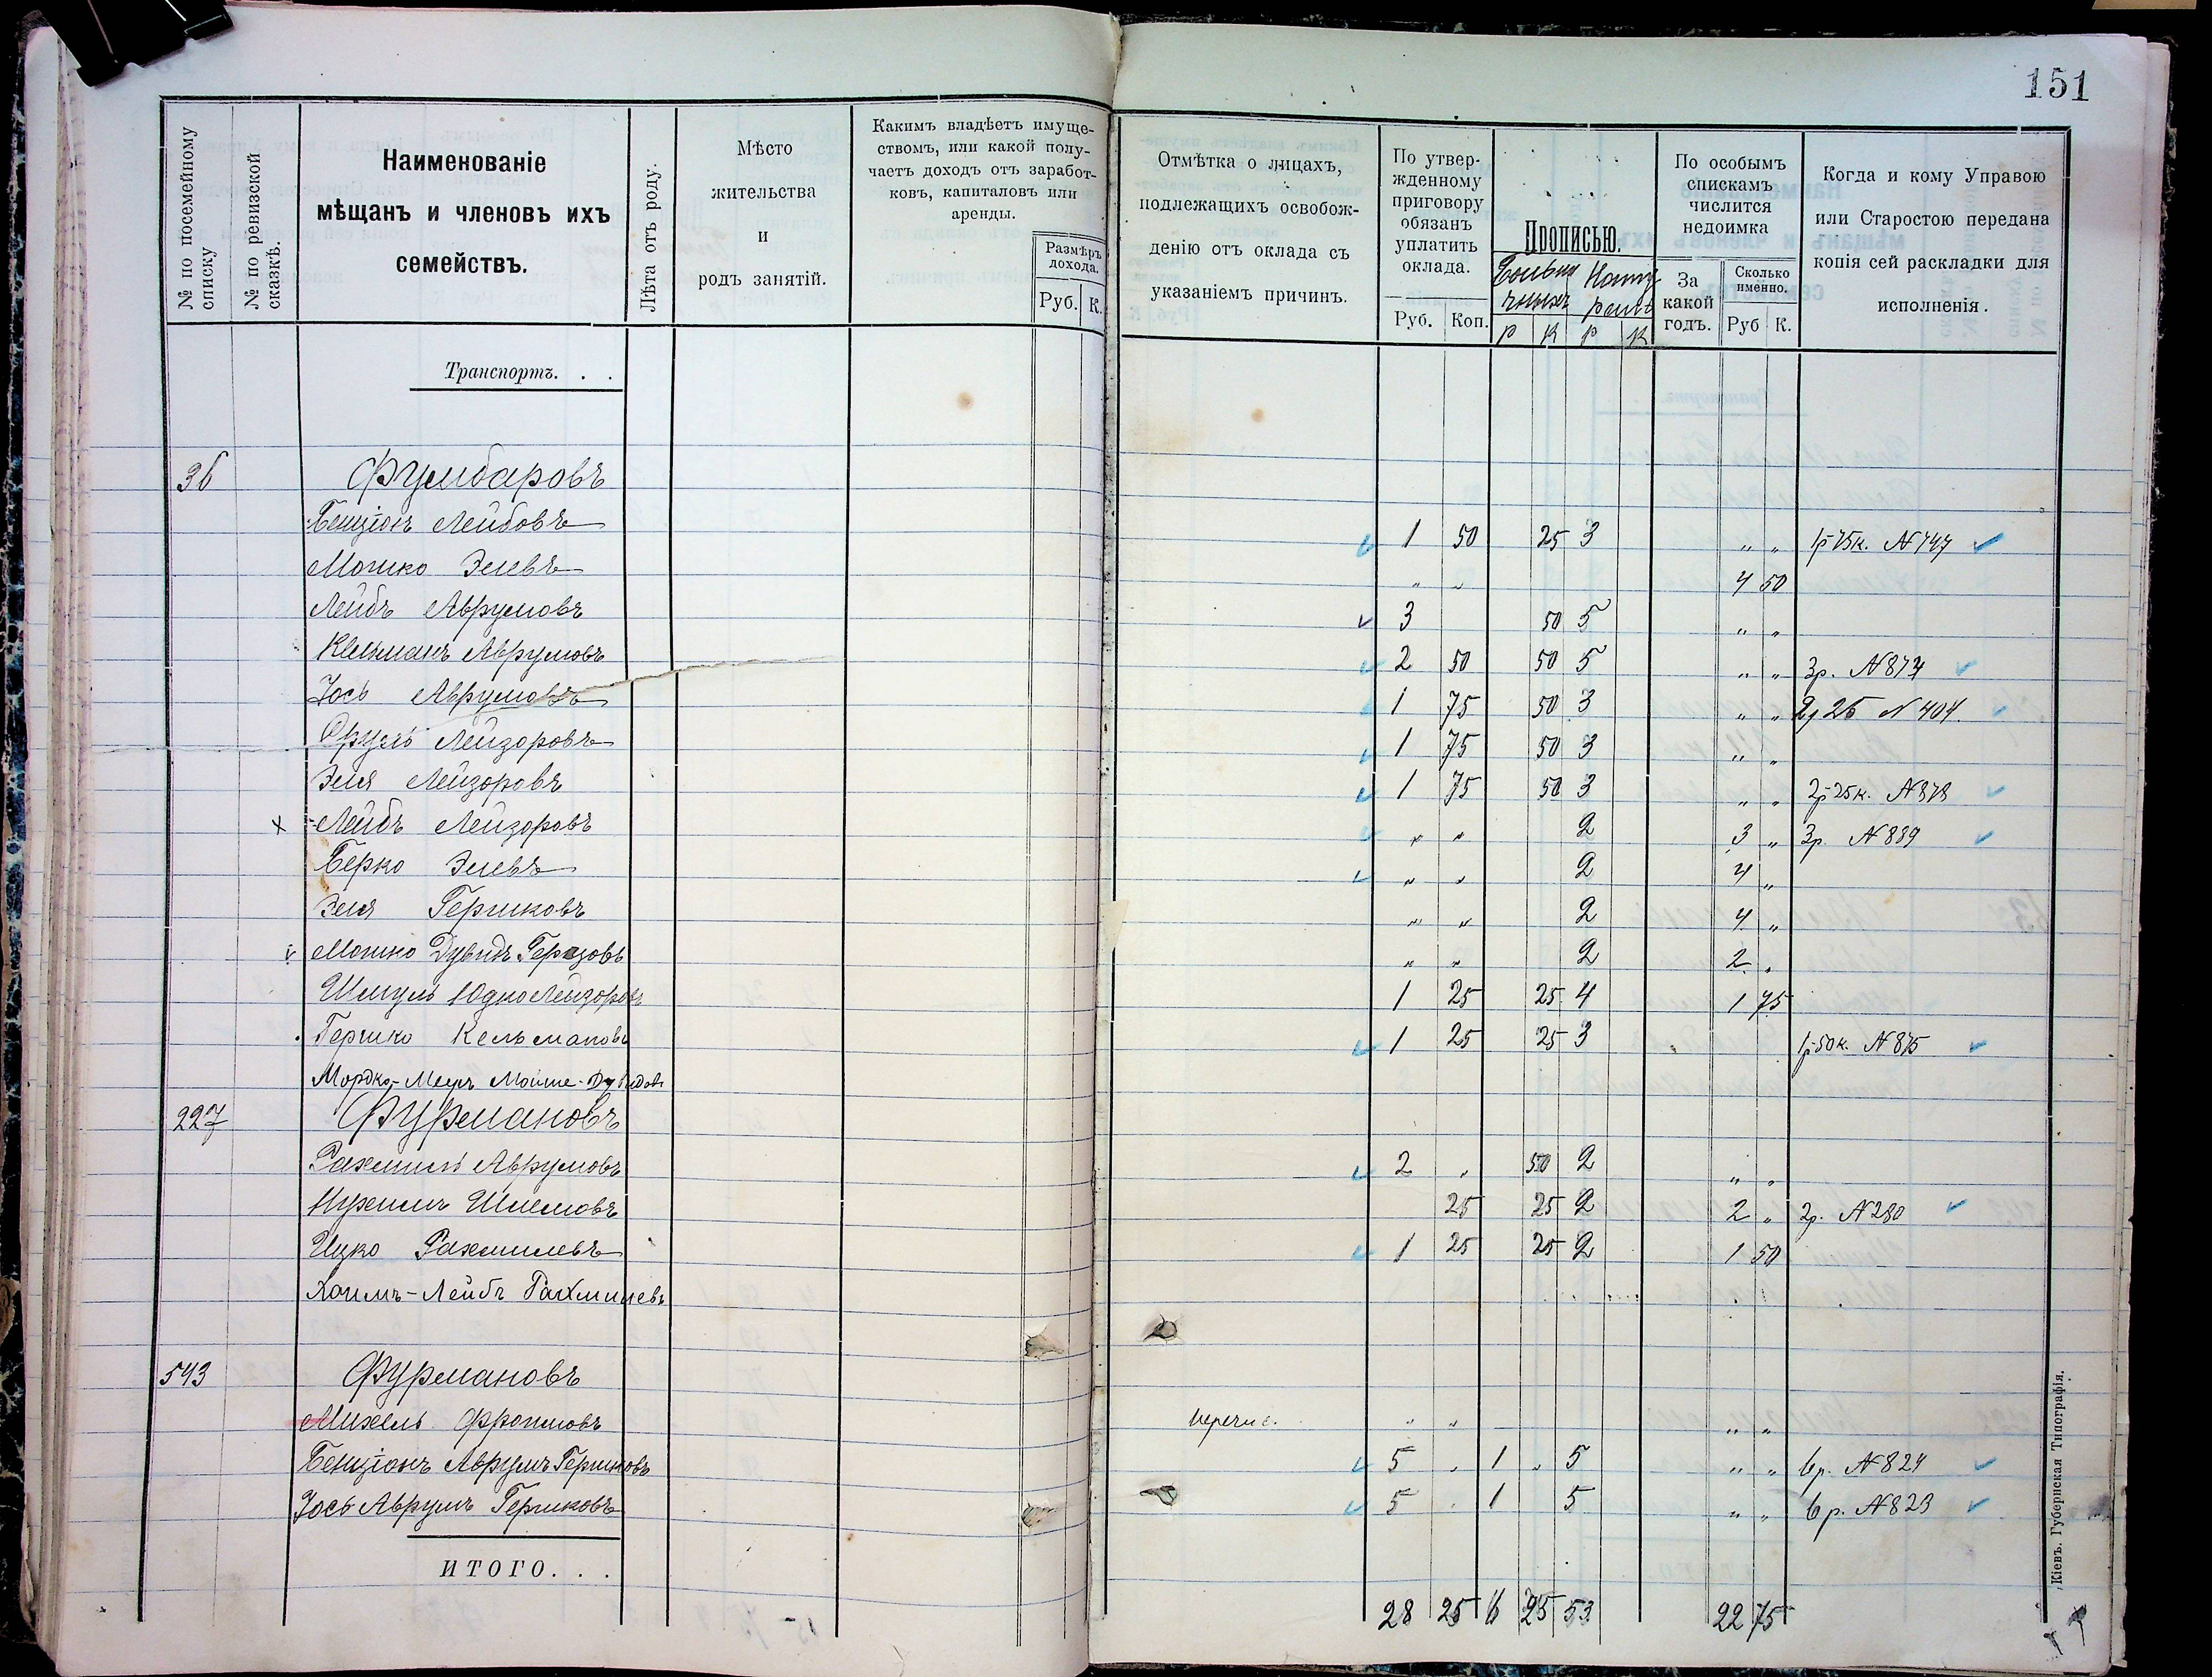 151
№ по посемейному списку
№ по ревизской сказкѣ.
Наименованіе мѣщанъ и членовъ ихъ семействъ.
Лѣта отъ роду.
Мѣсто жительства и родъ занятій.
Какимъ владѣетъ имуществомъ, или какой получаетъ доходъ отъ заработковъ, капиталовъ или аренды.
Размѣръ дохода.
Руб. К.
Отмѣтка о лицахъ, подлежащихъ освобожденію отъ оклада съ указаніемъ причинъ.
По утвержденному приговору обязанъ уплатить оклада.
Руб. Коп.
Прописью.
Р К Р К
По особымъ спискамъ числится недоимка
За какой годъ.
Сколько именно.
Руб К.
Когда и кому Управою или Старостою передана копія сей раскладки для исполненія.
Транспортъ. . .
36 Фумбаровъ
Бенціонъ Лейбовъ 1 50 25 3 " " 1р 75к. № 747
Мошко Элевъ " " 4 50
Лейбъ Аврумовъ 3 50 5 " "
Кельманъ Аврумовъ 2 50 50 5 " " 3р. № 874
Іось Аврумовъ 1 75 50 3 " " 2р 25 № 404
Сруль Лейзоровъ 1 75 50 3 " "
Эля Лейзоровъ 1 75 50 3 " " 2р 25к. № 878
х Лейбъ Лейзоровъ " " 2 3 " 3р. № 889
Берко Элевъ " " 2 4 "
Эля Гершковъ " " 2 4 "
v Мошко Дувидъ " " 2 2 "
Шмуль Юдко Лейзоровъ 1 25 25 4 1 75
Гершко Кельмановъ 1 25 25 3 1р 50к. № 875
Мордко-Мееръ Мойше-Дувидовъ
227 Фурмановъ
Рахмиль Аврумовъ 2 " 50 2 " "
Нухимъ Шлемовъ 25 25 2 2 " 2р. № 280
Ицко Рахмилевъ 1 25 25 2 1 50
Хаимъ-Лейбъ Рахмилевъ
543 Фурмановъ
Михель Фроимовъ перечис. " " " "
Бенціонъ Аврумъ Гершковъ 5 " 1 " 5 " " 6р. № 824
Іось Аврумъ Гершковъ 5 " 1 5 " " 6р. № 823
ИТОГО. . .
28 25 6 25 53 22 75
Кіевъ. Губернская Типографія.